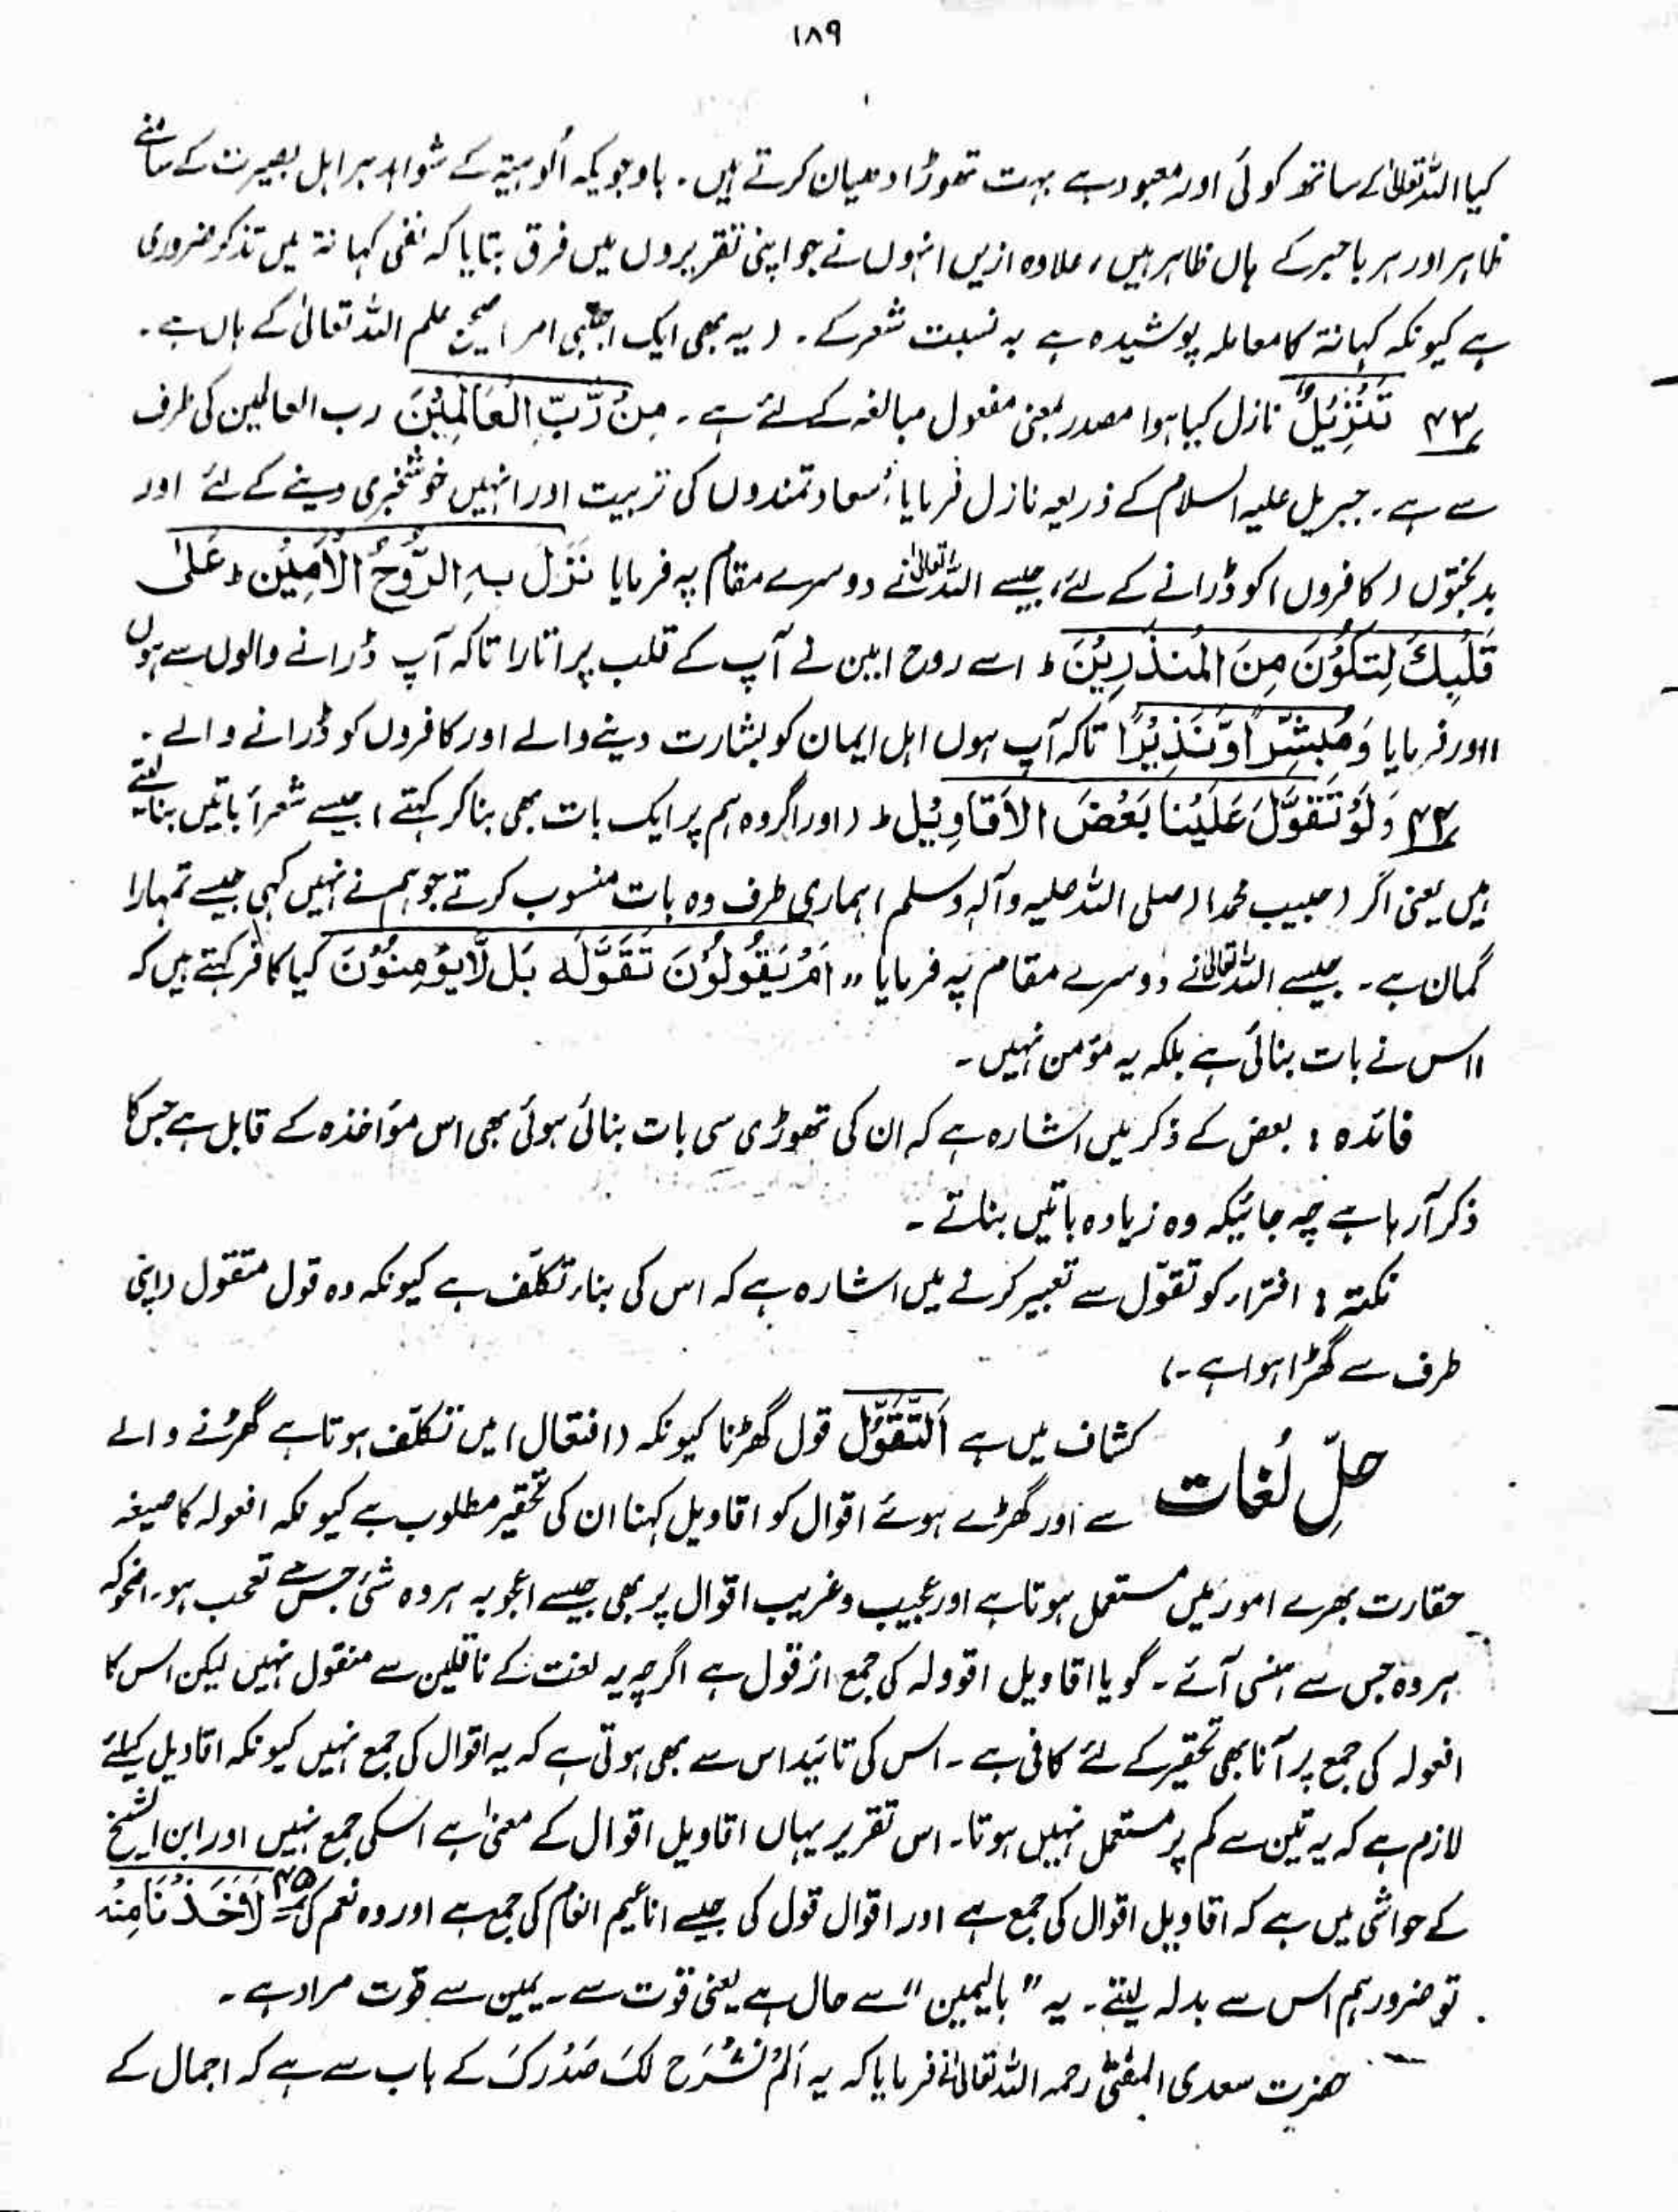 ۱۸۹
کیا اللہ تعالیٰ کے ساتھ کوئی اور معبود ہے بہت تھوڑا دھیان کرتے ہیں۔ باوجویکہ اُلوہیۃ کے شواہد ہر اہل بصیرت کے سامنے
ظاہر اور ہر باخبر کے ہاں ظاہر ہیں، علاوہ ازیں انہوں نے جو اپنی تقریروں میں فرق بتایا کہ نفی کہانۃ میں تذکر ضروری
ہے کیونکہ کہانۃ کا معاملہ پوشیدہ ہے بہ نسبت شعر کے۔ (یہ بھی ایک اجنبی امر) صحیح علم اللہ تعالیٰ کے ہاں ہے۔
۴۳ تَنْزِیْلٌ نازل کیا ہوا مصدر بمعنی مفعول مبالغہ کے لئے ہے۔ مِنْ رَّبِّ الْعَالَمِیْنَ رب العالمین کی طرف
سے ہے۔ جبریل علیہ السلام کے ذریعہ نازل فرمایا، سعادتمندوں کی تربیت اور انہیں خوشخبری دینے کے لئے اور
بدبختوں (کافروں) کو ڈرانے کے لئے، جیسے اللہ تعالیٰ نے دوسرے مقام پہ فرمایا نَزَلَ بِہِ الرُّوْحُ الْاَمِیْن ط عَلیٰ
قَلْبِکَ لِتَکُوْنَ مِنَ الْمُنْذَرِیْنَ ط اسے روح امین نے آپ کے قلب پر اتارا تاکہ آپ ڈرانے والوں سے ہوں
اور فرمایا وَمُبَشِّرًا وَّنَذِیْرًا تاکہ آپ ہوں اہل ایمان کو بشارت دینے والے اور کافروں کو ڈرانے والے۔
۴۴ وَلَوْ تَقَوَّلَ عَلَیْنَا بَعْضَ الْاَقَاوِیْل ط (اور اگر وہ ہم پر ایک بات بھی بنا کر کہتے) جیسے شعرأ باتیں بنا لیتے
ہیں یعنی اگر (حبیب محمد) (صلی اللہ علیہ وآلہ وسلم) ہماری طرف وہ بات منسوب کرتے جو ہم نے نہیں کہی جیسے تمہارا
گمان ہے۔ جیسے اللہ تعالیٰ نے دوسرے مقام پہ فرمایا "اَمْ یَقُوْلُوْنَ تَقَوَّلَہ بَل لَّا یُؤْمِنُوْنَ کیا کافر کہتے ہیں کہ
اس نے بات بنائی ہے بلکہ یہ مؤمن نہیں۔
فائدہ : بعض کے ذکر میں اشارہ ہے کہ ان کی تھوڑی سی بات بنائی ہوئی بھی اس مؤاخذہ کے قابل ہے جس کا
ذکر آ رہا ہے چہ جائیکہ وہ زیادہ باتیں بناتے۔
نکتہ : افتراء کو تقوّل سے تعبیر کرنے میں اشارہ ہے کہ اس کی بناء تکلّف ہے کیونکہ وہ قول متقول (اپنی
طرف سے گھڑا ہوا ہے۔)
حلِّ لُغات کشاف میں ہے اَلتَّقَوُّل قول گھڑنا کیونکہ (افتعال) میں تکلّف ہوتا ہے گھڑنے والے
سے اور گھڑے ہوئے اقوال کو اقاویل کہنا ان کی تحقیر مطلوب ہے کیونکہ افعولہ کا صیغہ
حقارت بھرے امور میں مستعمل ہوتا ہے اور عجیب و غریب اقوال پر بھی جیسے اعجوبہ ہر وہ شئ جس سے تعجب ہو۔ اضحوکہ
ہر وہ جس سے ہنسی آئے۔ گویا اقاویل اقوولہ کی جمع از قول ہے اگرچہ یہ لغت کے ناقلین سے منقول نہیں لیکن اس کا
افعولہ کی جمع پر آنا بھی تحقیر کے لئے کافی ہے۔ اس کی تائید اس سے بھی ہوتی ہے کہ یہ اقوال کی جمع نہیں کیونکہ اقاویل کیلئے
لازم ہے کہ یہ تین سے کم پر مستعمل نہیں ہوتا۔ اس تقریر یہاں اقاویل اقوال کے معنیٰ ہے اسکی جمع نہیں اور ابن الشیخ
کے حواشی میں ہے کہ اقاویل اقوال کی جمع ہے اور اقوال قول کی جیسے اناعیم انعام کی جمع ہے اور وہ نعم کی ۴۵ لَاَخَذْنَا مِنْہ
تو ضرور ہم اس سے بدلہ لیتے۔ یہ "بالیمین" سے حال ہے یعنی قوّت سے۔ یمین سے قوّت مراد ہے۔
حضرت سعدی المفتی رحمہ اللہ تعالیٰ نے فرمایا کہ یہ اَلَمْ نَشْرَح لَکَ صَدْرَکَ کے باب سے ہے کہ اجمال کے